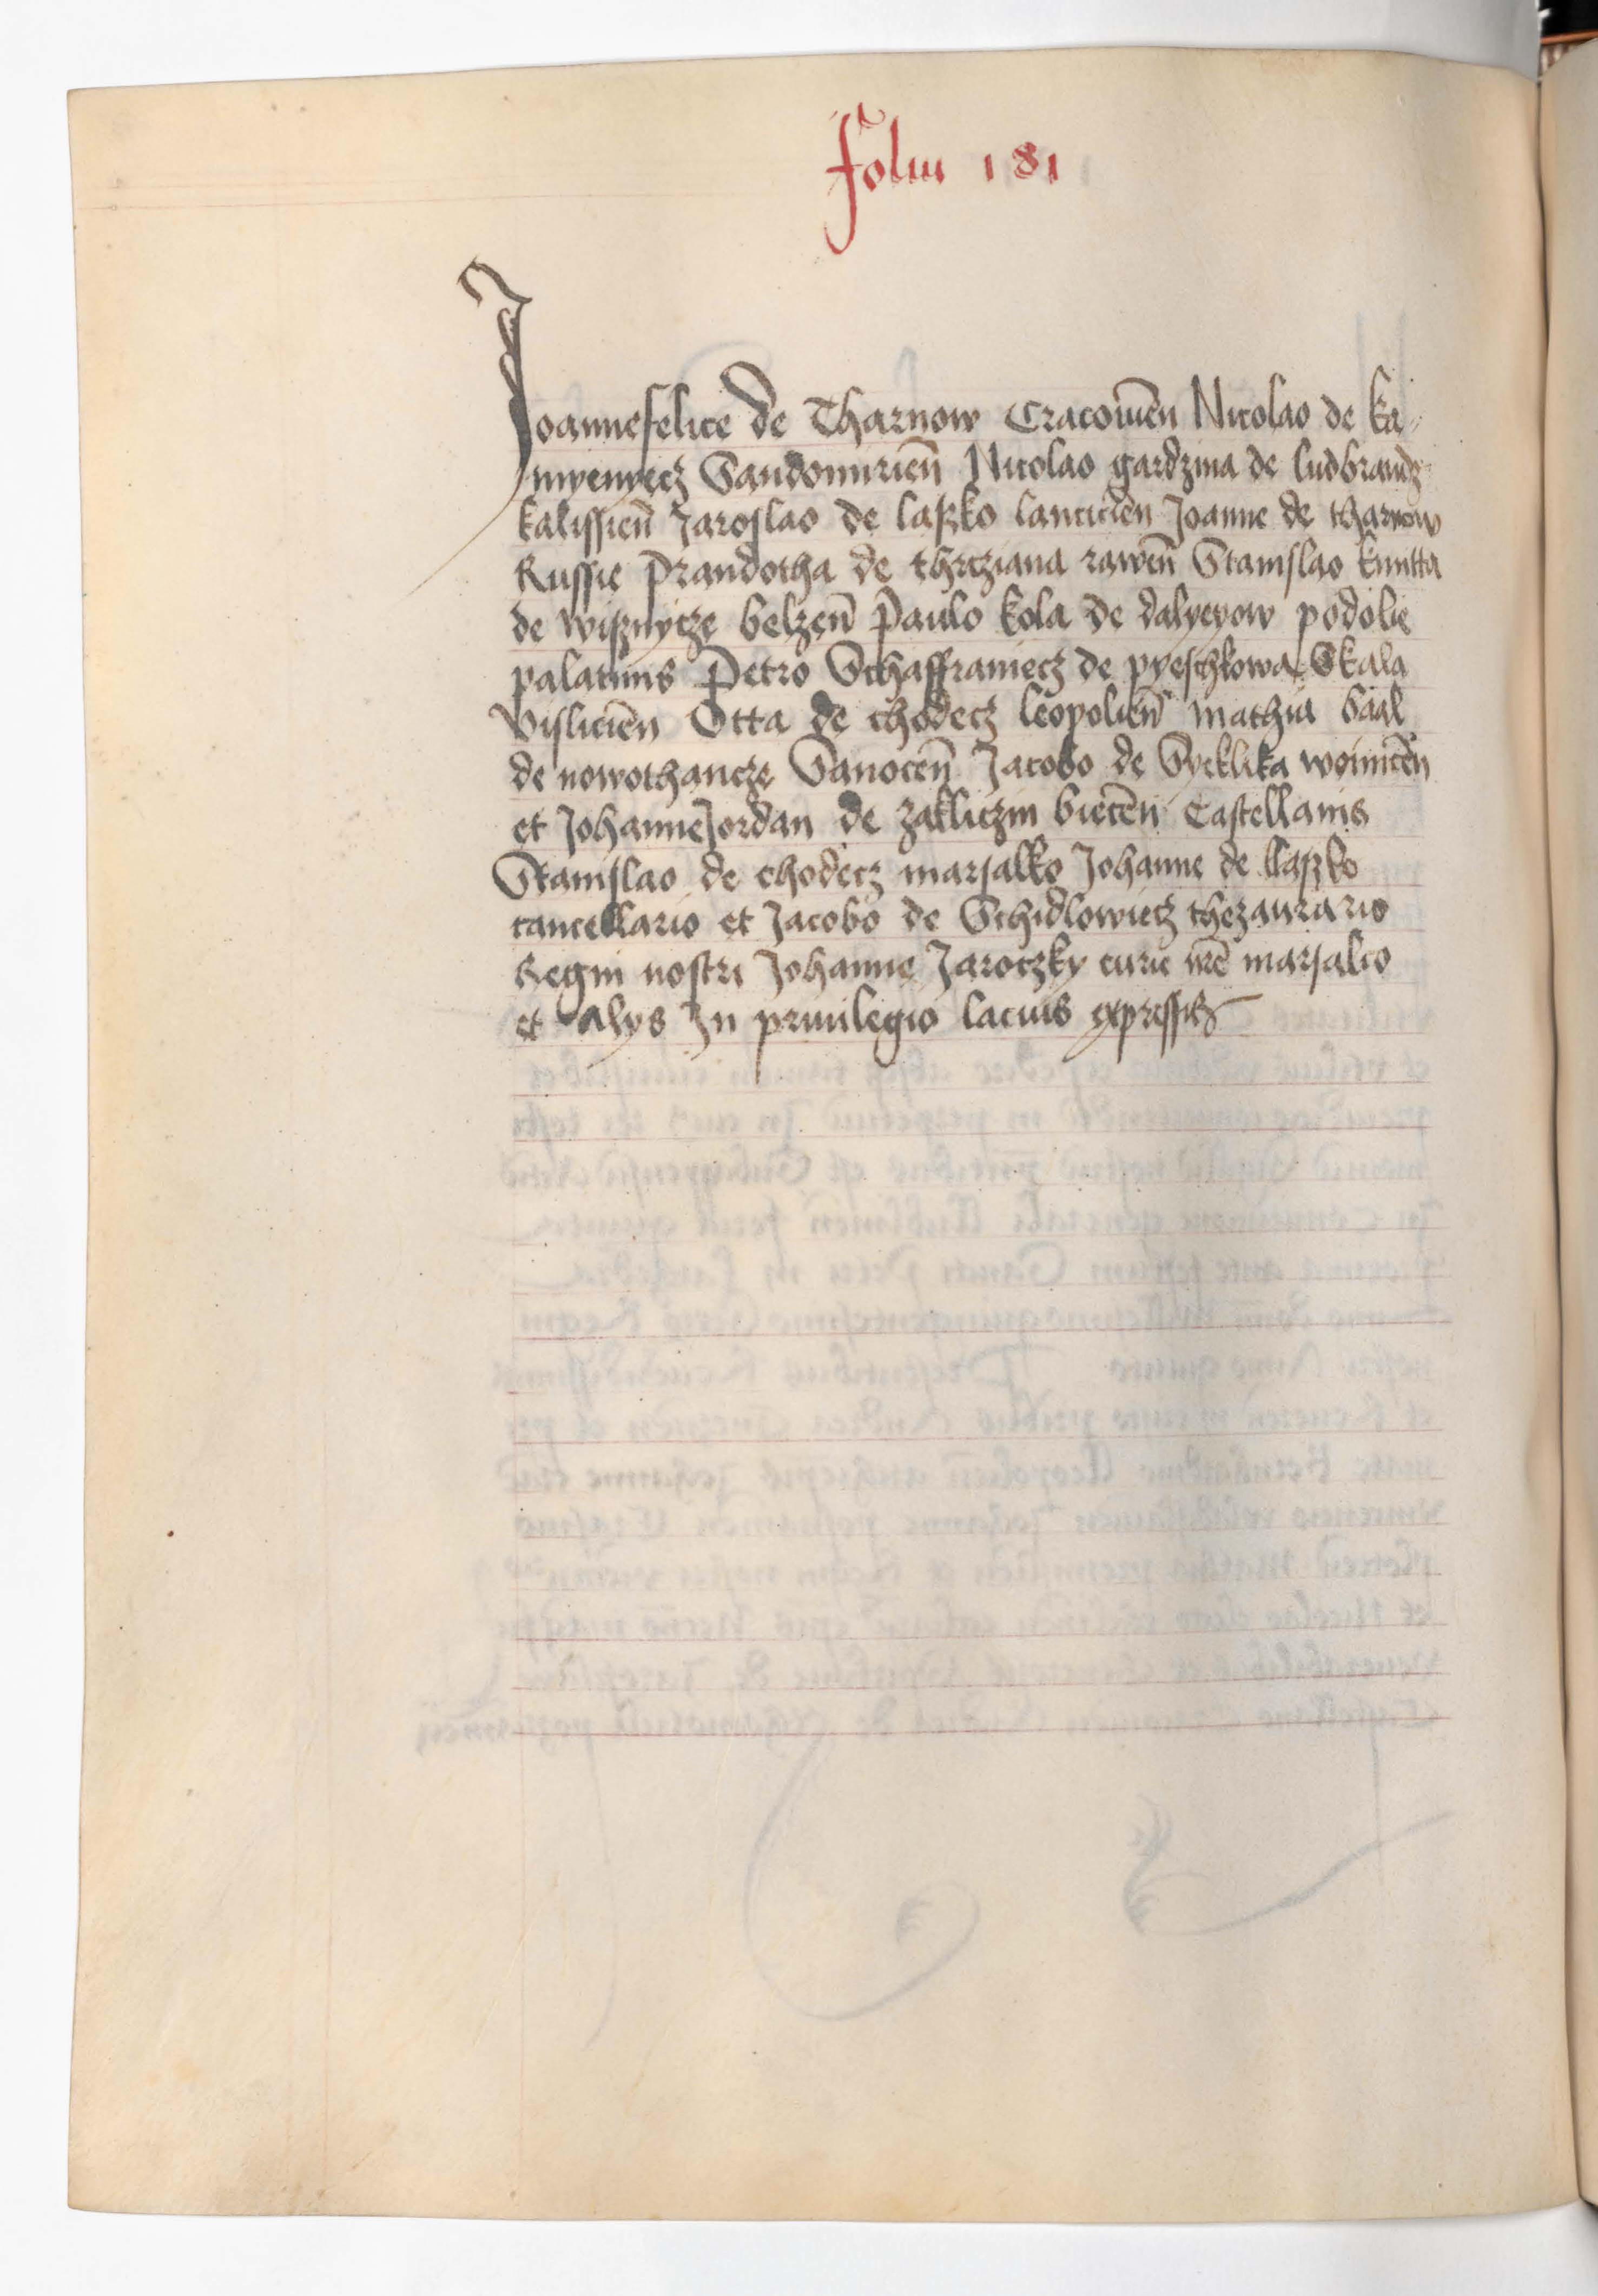 Foliu 181
Joannefelice de Tharnow Cracouien̄ Nicolao de Ka-
myenyecz Sandomirien̄ Nicolao gardzina de ludbrancz
kalissien̄ Jaroslao de laszko lancicien̄ Joanne de tharnow
Russie Prandotha de thrcziana rawen̄ Stanislao kmitta
de wisznycze belzen̄ Paulo kola de dalyeyow podolie
palatinis Petro Schaffraniecz de pyeschkowa Skala
Vislicien̄ Otta de chodecz leopolien̄ mathia baal
de nowothancze Sanocen̄ Jacobo de Syeklika woinicen̄
et Johanne Jordan de zakliczin biecen̄ Castellanis
Stanislao de chodecz marsalko Johanne de laszko
cancellario et Jacobo de Schidlowiecz thezaurario
Regni nostri Johanne Jaroczky curie nrē marsalco
et alys In priuilegio lacius expressis